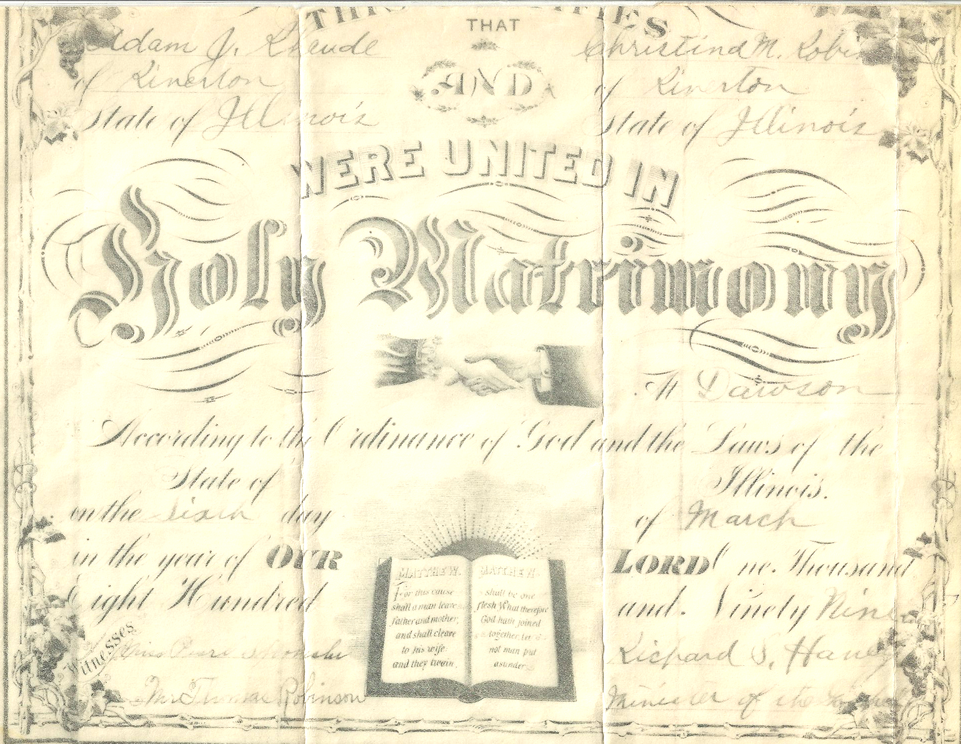 THIS
THAT
Adam J. Christina M.
AND
of Kinerton of
State of Illinois State of Illinois
WERE UNITED IN
Holy Matrimony
At Dawson
According to the Ordinance of God and the Laws of the
State of Illinois.
on the sixth day of March
in the year of OUR LORD One Thousand
Eight Hundred and Ninety Nine
MATTHEW. MATTHEW.
For this cause shall be one
shall a man leave flesh What therefore
father and mother, God hath joined
and shall cleave together, let
to his wife not man put
and they twain, asunder
Witnesses
Richard S. Haney
Mr Thomas Robinson
Minister of the